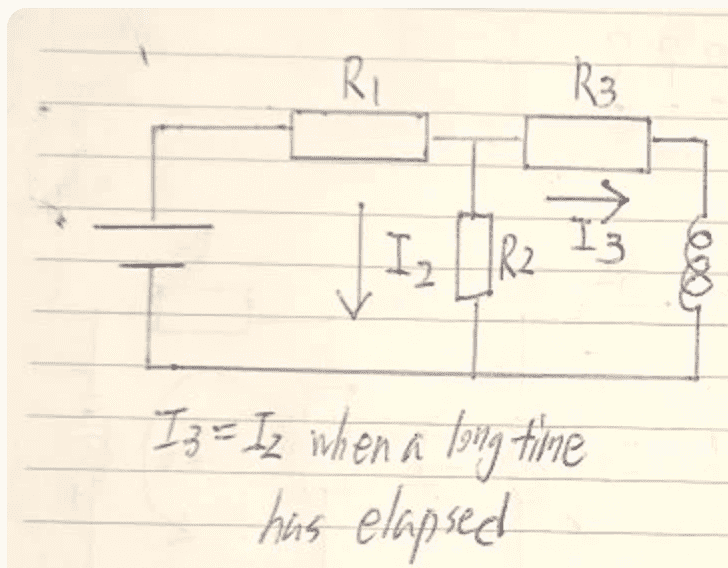 R1
R3
I2
R2
I3
I3 = I2 when a long time
has elapsed